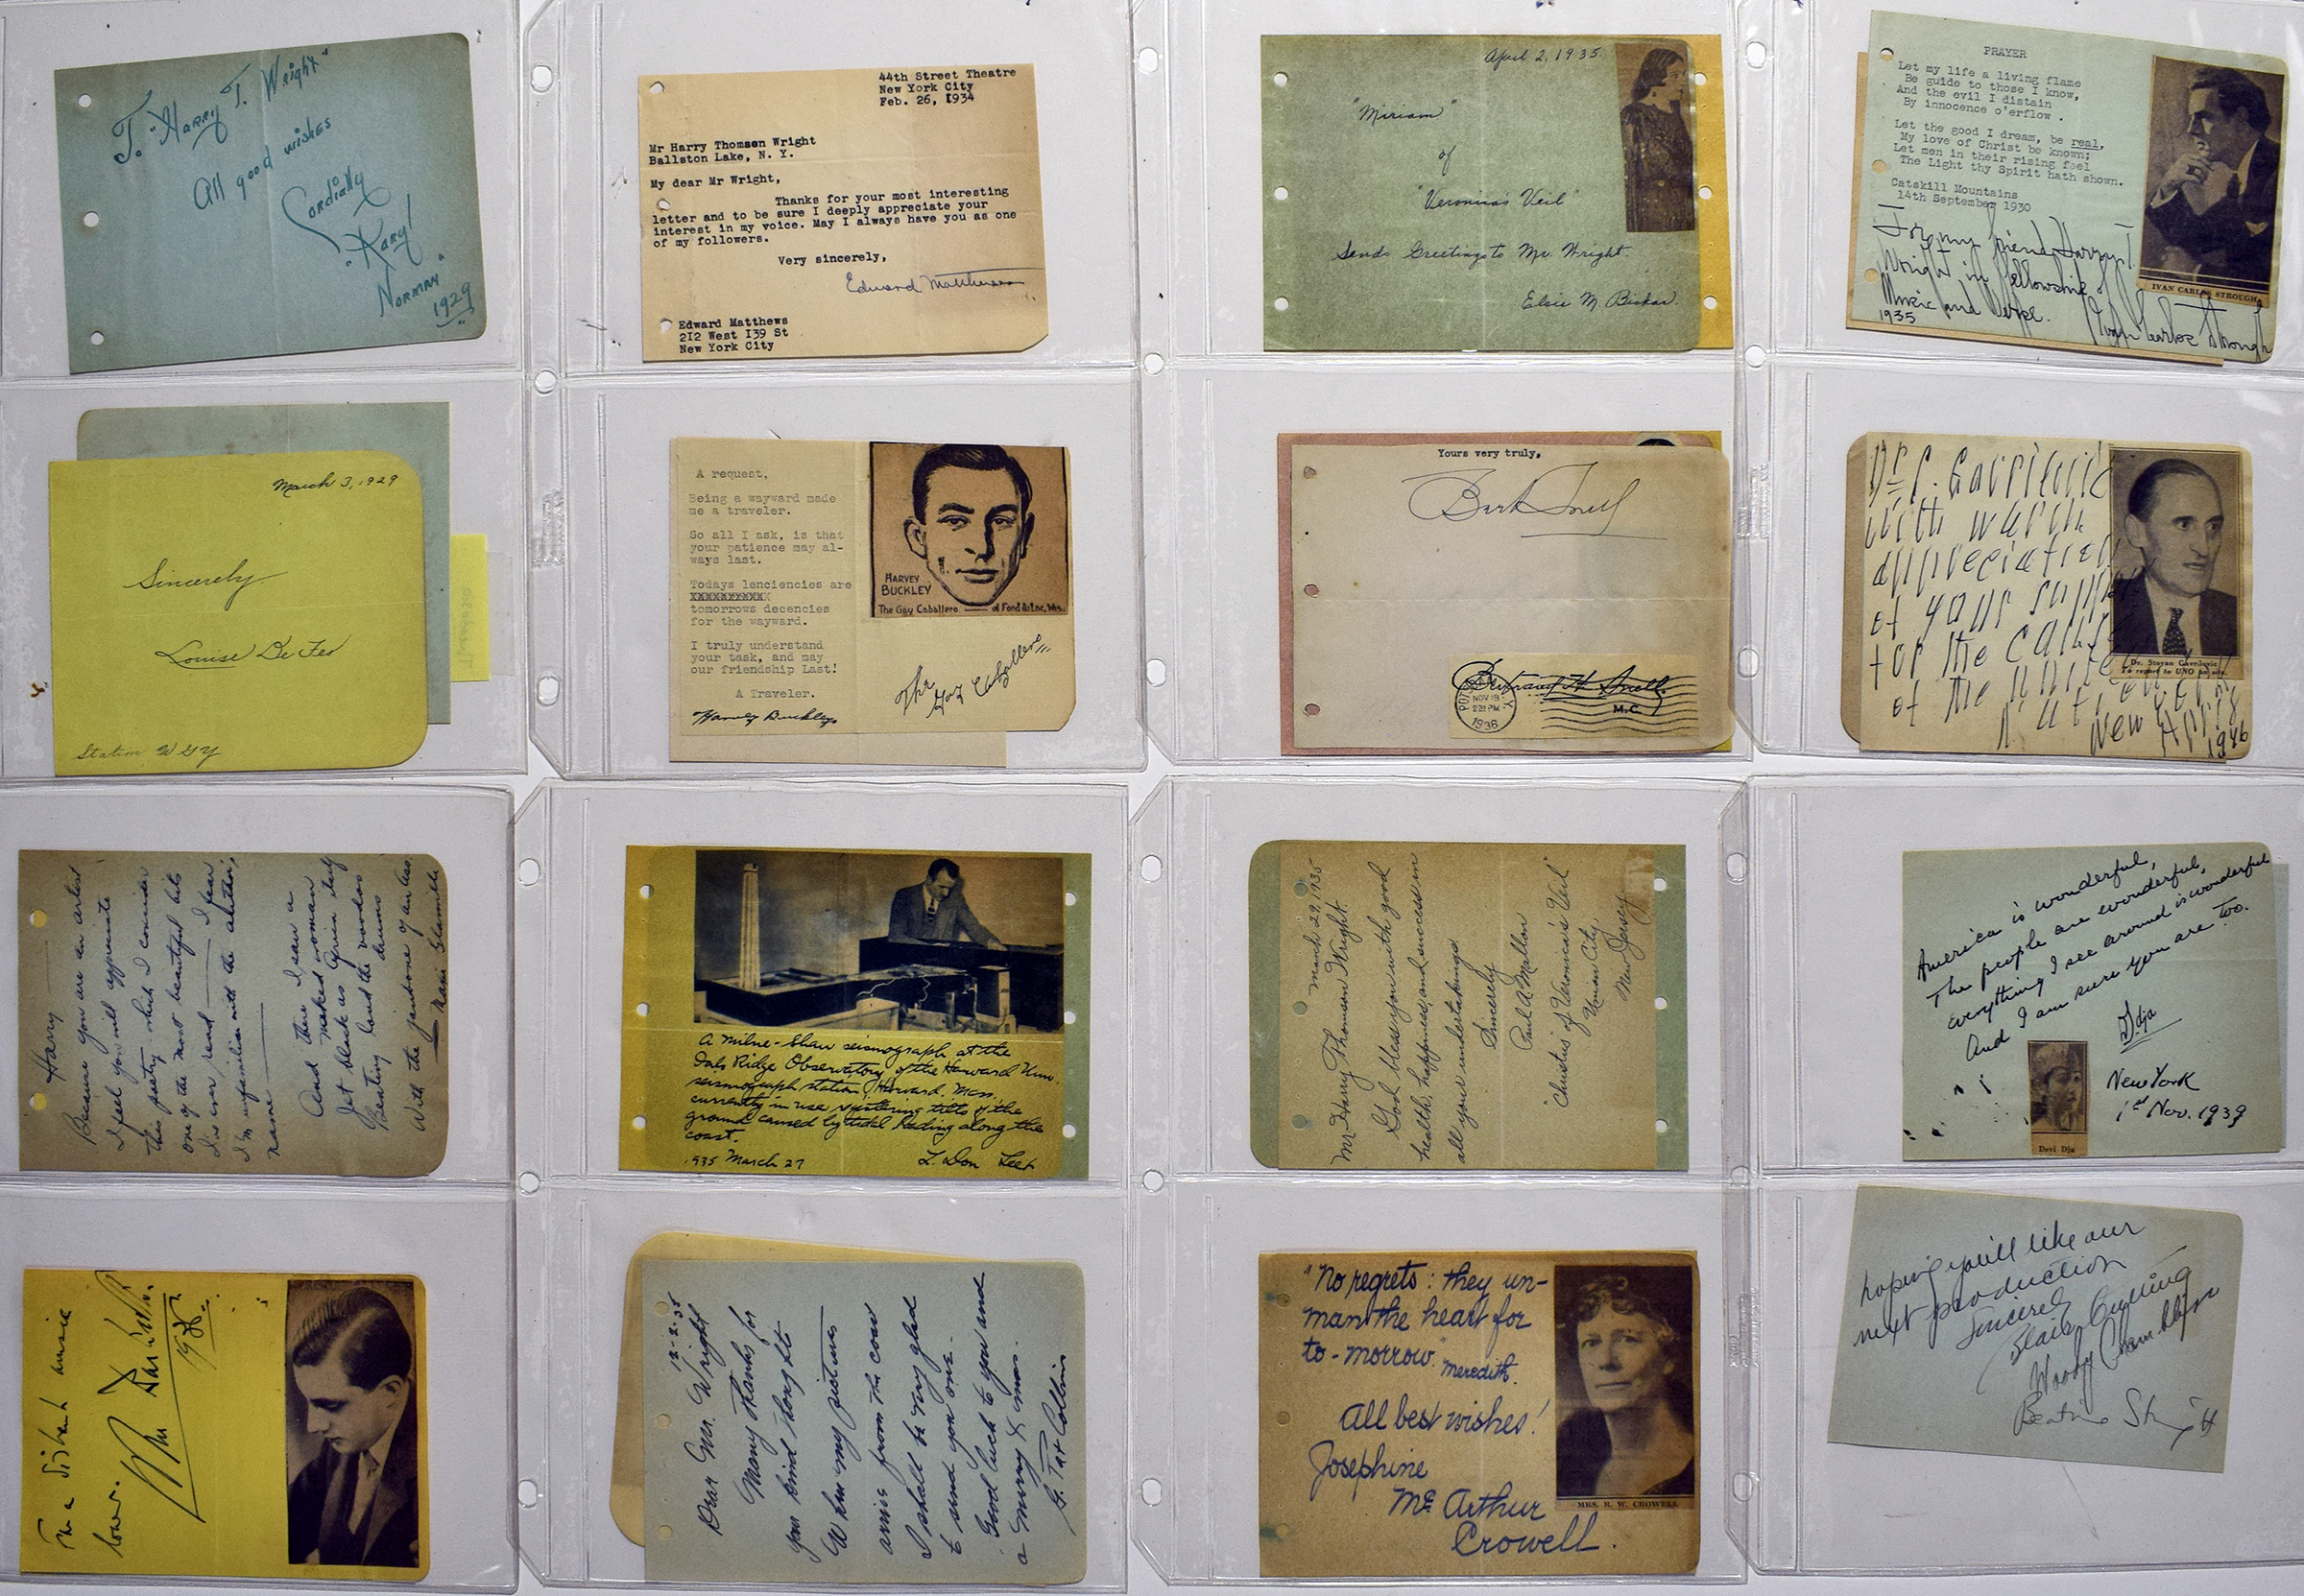 To "Harry T. Wright"
All good wishes
Cordially
"Kary!
Norman"
1929
44th Street Theatre
New York City
Feb. 26, I934
Mr Harry Thomson Wright
Ballston Lake, N. Y.
My dear Mr Wright,
Thanks for your most interesting
letter and to be sure I deeply appreciate your
interest in my voice. May I always have you as one
of my followers.
Very sincerely,
Edward Matthews
Edward Matthews
2I2 West I39 St
New York City
April 2, 1935
"Miriam"
of
"Veronica's Veil"
Sends Greetings to Mr. Wright.
Elsie M.
PRAYER
Let my life a living flame
Be guide to those I know,
And the evil I distain
By innocence o'erflow .
Let the good I dream, be real,
My love of Christ be known;
Let men in their rising feel
The Light thy Spirit hath shown.
Catskill Mountains
14th September 1930
For my friend Harry T.
Wright in fellowship of
Music and Verse.
1935
Ivan Carlos Strough
IVAN CARLOS STROUGH
March 3, 1929
Sincerely
Louise De Feo
Station WGY
A request,
Being a wayward made
me a traveler.
So all I ask, is that
your patience may al-
ways last.
Todays lenciencies are
XXXXXXXXXX
tomorrows decencies
for the wayward.
I truly understand
your task, and may
our friendship Last!
A Traveler.
Harvey Buckley
HARVEY
BUCKLEY
The Gay Caballero — of Fond du Lac, Wis.
The Gay Caballero
Yours very truly,
Bert Snell
Bertrand H. Snell
M.C.
NOV 19
1936
Dr. S. Gavrilovic
with warm
appreciation
of your support
for the cause
of the United
Nations
New York
1946
Dr. Stoyan Gavrilovic
To report to UNO on site.
Harry —
Because you are an artist
I feel you will appreciate
this poetry which I consider
one of the most beautiful bits
I've ever read — I fear
I'm unfamiliar with the author's
name —
And there I saw a
naked woman
Jet black as
Beating loud the voodoo
drums
With the jawbone of an ass
A Milne-Shaw seismograph at the
Oak Ridge Observatory of the Harvard Univ.
seismograph station, Harvard, Mass.,
currently in use registering tilts of the
ground caused by tidal loading along the
coast.
1935 March 27
L. Don Leet
March 29, 1935
Mr. Harry Thomson Wright.
God bless you with good
health, happiness, and success in
all your undertakings
Sincerely
Paul A. Mallon
"Christus of Veronica's Veil"
Union City,
New Jersey
America is wonderful,
The people are wonderful,
Everything I see around is wonderful
And I am sure you are too.
Dja
New York
1st Nov. 1939
Devi Dja
1936
12-2-35
Dear Mr. Wright
Many thanks for
your kind thought
When my pictures
arrive from the coast
I shall be very glad
to send you one.
Good luck to you and
a merry Xmas.
G. Pat Collins
"No regrets: they un-
man the heart for
to-morrow." Meredith.
All best wishes!
Josephine
McArthur
Crowell.
MRS. R. W. CROWELL
hoping you'll like our
next production
Sincerely
Blair Cumming
Woody Chambliss
Beatrice Straight